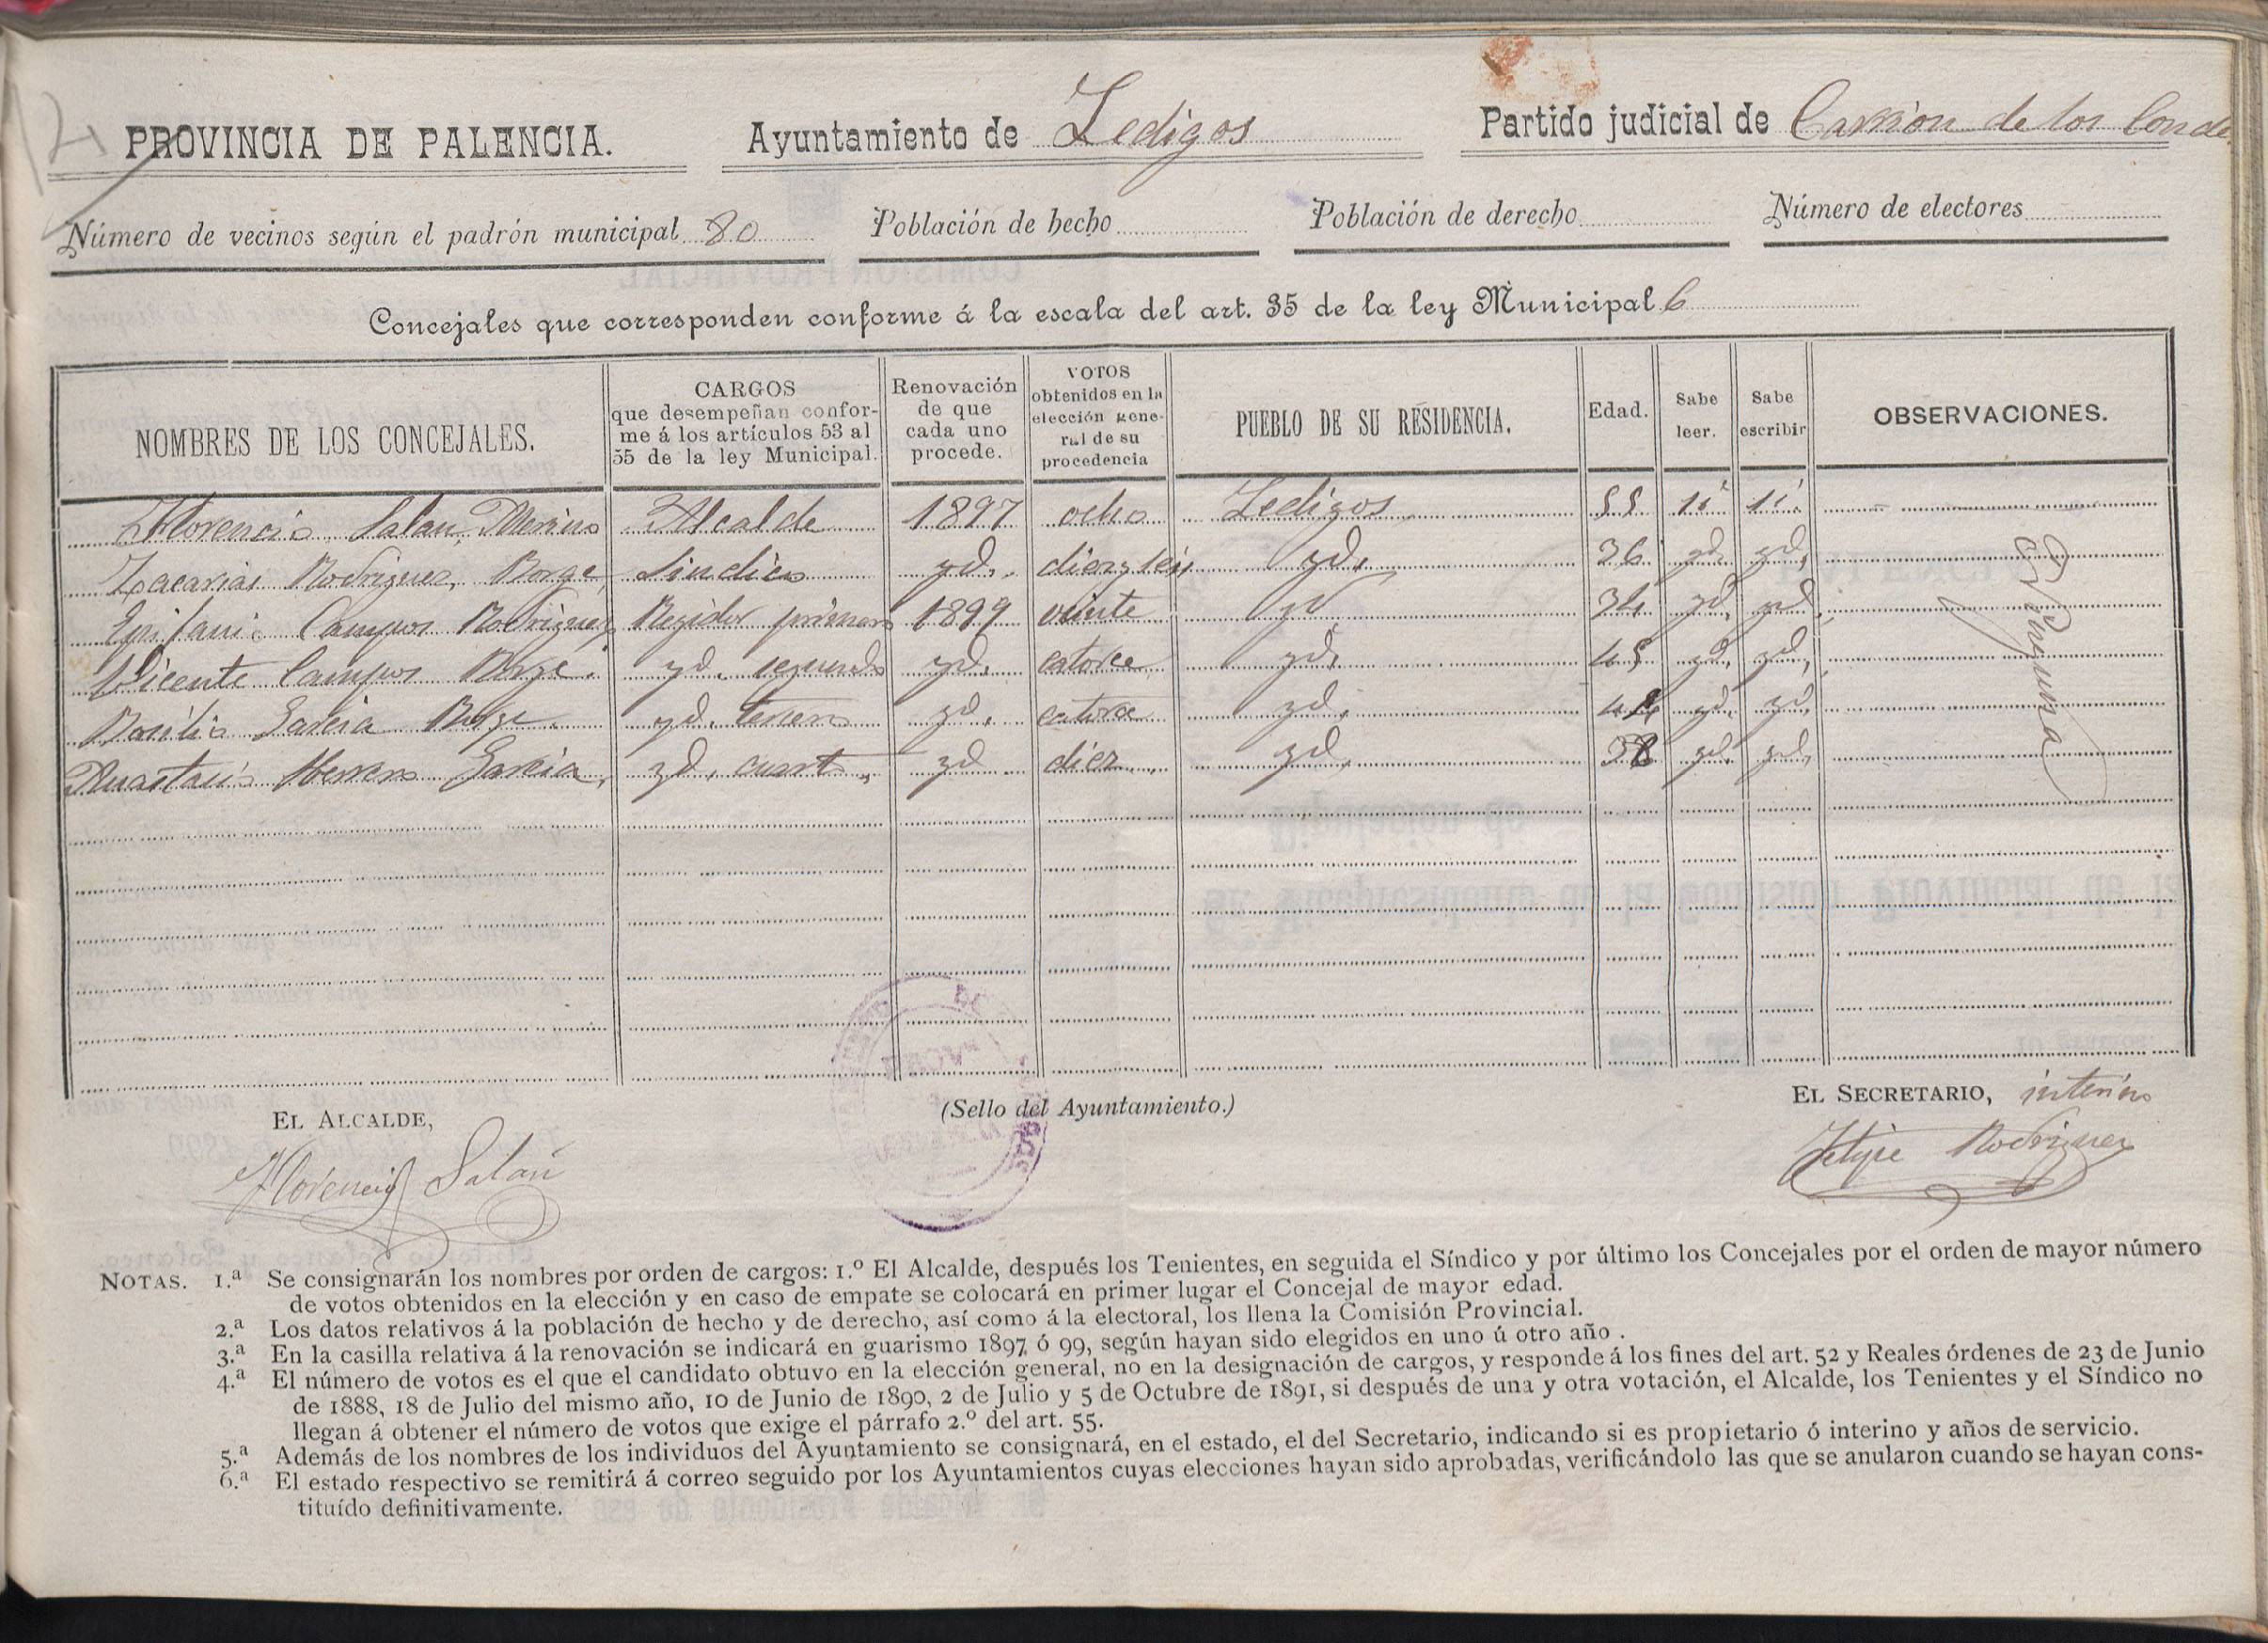 PROVINCIA DE PALENCIA. Ayuntamiento de Ledigos Partido judicial de Carrion de los Conde
Número de vecinos según el padrón municipal 80 Población de hecho Población de derecho Número de electores
Concejales que corresponden conforme á la escala del art. 35 de la ley Municipal 6
NOMBRES DE LOS CONCEJALES. CARGOS que desempeñan confor-me á los artículos 53 al 55 de la ley Municipal. Renovación de que cada uno procede. VOTOS obtenidos en la elección gene-ral de su procedencia PUEBLO DE SU RESIDENCIA. Edad. Sabe leer. Sabe escribir OBSERVACIONES.
Florencio Salan Merino Alcalde 1897 ocho Ledigos 55 si si
Zacarias Rodriguez Borge Sindico yd. diez y seis yd. 36 yd. yd.
Epifanio Campos Rodriguez Regidor primero 1899 veinte yd 34 yd. yd.
Vicente Campos Borge yd. segundo yd. catorce yd. 45 yd. yd.
Basilio Garcia Borge yd. tercero yd. catorce yd. yd. yd.
Anastasio Herrero Garcia yd. cuarto yd. diez yd. 38 yd. yd.
Ninguna
EL ALCALDE,
Florencio Salán
(Sello del Ayuntamiento.)
EL SECRETARIO, interino
Felipe Rodriguez
NOTAS. 1.ª Se consignarán los nombres por orden de cargos: 1.º El Alcalde, después los Tenientes, en seguida el Síndico y por último los Concejales por el orden de mayor número
de votos obtenidos en la elección y en caso de empate se colocará en primer lugar el Concejal de mayor edad.
2.ª Los datos relativos á la población de hecho y de derecho, así como á la electoral, los llena la Comisión Provincial.
3.ª En la casilla relativa á la renovación se indicará en guarismo 1897 ó 99, según hayan sido elegidos en uno ú otro año .
4.ª El número de votos es el que el candidato obtuvo en la elección general, no en la designación de cargos, y responde á los fines del art. 52 y Reales órdenes de 23 de Junio
de 1888, 18 de Julio del mismo año, 10 de Junio de 1890, 2 de Julio y 5 de Octubre de 1891, si después de una y otra votación, el Alcalde, los Tenientes y el Síndico no
llegan á obtener el número de votos que exige el párrafo 2.º del art. 55.
5.ª Además de los nombres de los individuos del Ayuntamiento se consignará, en el estado, el del Secretario, indicando si es propietario ó interino y años de servicio.
6.ª El estado respectivo se remitirá á correo seguido por los Ayuntamientos cuyas elecciones hayan sido aprobadas, verificándolo las que se anularon cuando se hayan cons-
tituído definitivamente.